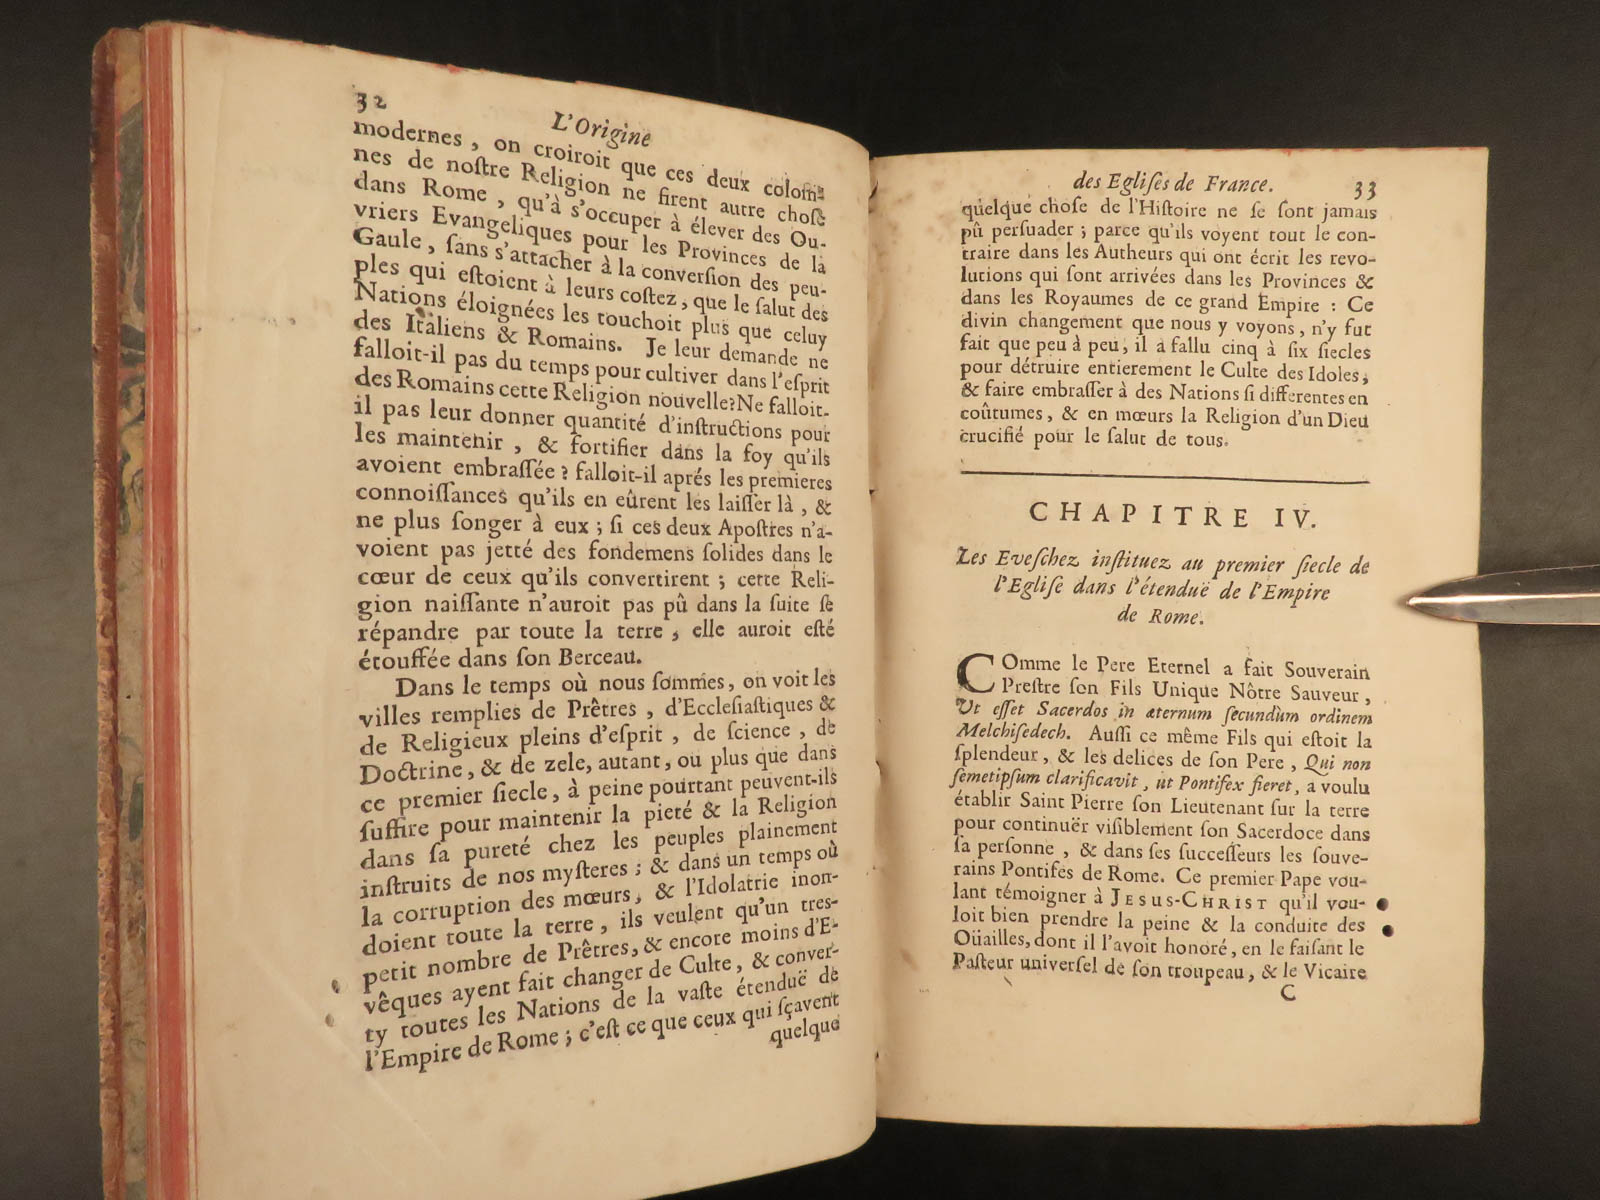 32
L'Origine
modernes, on croiroit que ces deux colom-
nes de noſtre Religion ne firent autre choſe
dans Rome, qu'à s'occuper à élever des Ou-
vriers Evangeliques pour les Provinces de la
Gaule, ſans s'attacher à la converſion des peu-
ples qui eſtoient à leurs coſtez, que le ſalut des
Nations éloignées les touchoit plus que celuy
des Italiens & Romains. Je leur demande ne
falloit-il pas du temps pour cultiver dans l'eſprit
des Romains cette Religion nouvelle? Ne falloit-
il pas leur donner quantité d'inſtructions pour
les maintenir, & fortifier dans la foy qu'ils
avoient embraſſée? falloit-il aprés les premieres
connoiſſances qu'ils en eûrent les laiſſer là, &
ne plus ſonger à eux; ſi ces deux Apoſtres n'a-
voient pas jetté des fondemens ſolides dans le
cœur de ceux qu'ils convertirent; cette Reli-
gion naiſſante n'auroit pas pû dans la ſuite ſe
répandre par toute la terre, elle auroit eſté
étouffée dans ſon Berceau.
Dans le temps où nous ſommes, on voit les
villes remplies de Prêtres, d'Eccleſiaſtiques &
de Religieux pleins d'eſprit, de ſcience, de
Doctrine, & de zele, autant, ou plus que dans
ce premier ſiecle, à peine pourtant peuvent-ils
ſuffire pour maintenir la pieté & la Religion
dans ſa pureté chez les peuples plainement
inſtruits de nos myſteres; & dans un temps où
la corruption des mœurs, & l'Idolatrie inon-
doient toute la terre, ils veulent qu'un tres-
petit nombre de Prêtres, & encore moins d'E-
vêques ayent fait changer de Culte, & conver-
ty toutes les Nations de la vaſte étenduë de
l'Empire de Rome; c'eſt ce que ceux qui ſçavent
quelque
des Egliſes de France. 33
quelque choſe de l'Hiſtoire ne ſe ſont jamais
pû perſuader; parce qu'ils voyent tout le con-
traire dans les Autheurs qui ont écrit les revo-
lutions qui ſont arrivées dans les Provinces &
dans les Royaumes de ce grand Empire: Ce
divin changement que nous y voyons, n'y fut
fait que peu à peu, il a fallu cinq à ſix ſiecles
pour détruire entierement le Culte des Idoles,
& faire embraſſer à des Nations ſi differentes en
coûtumes, & en mœurs la Religion d'un Dieu
crucifié pour le ſalut de tous.
CHAPITRE IV.
Les Eveſchez inſtituez au premier ſiecle de
l'Egliſe dans l'étenduë de l'Empire
de Rome.
COmme le Pere Eternel a fait Souverain
Preſtre ſon Fils Unique Nôtre Sauveur,
Ut eſſet Sacerdos in æternum ſecundùm ordinem
Melchiſedech. Auſſi ce même Fils qui eſtoit la
ſplendeur, & les delices de ſon Pere, Qui non
ſemetipſum clarificavit, ut Pontifex fieret, a voulu
établir Saint Pierre ſon Lieutenant ſur la terre
pour continuër viſiblement ſon Sacerdoce dans
ſa perſonne, & dans ſes ſucceſſeurs les ſouve-
rains Pontifes de Rome. Ce premier Pape vou-
lant témoigner à JESUS-CHRIST qu'il vou-
loit bien prendre la peine & la conduite des
Oüailles, dont il l'avoit honoré, en le faiſant le
Paſteur univerſel de ſon troupeau, & le Vicaire
C